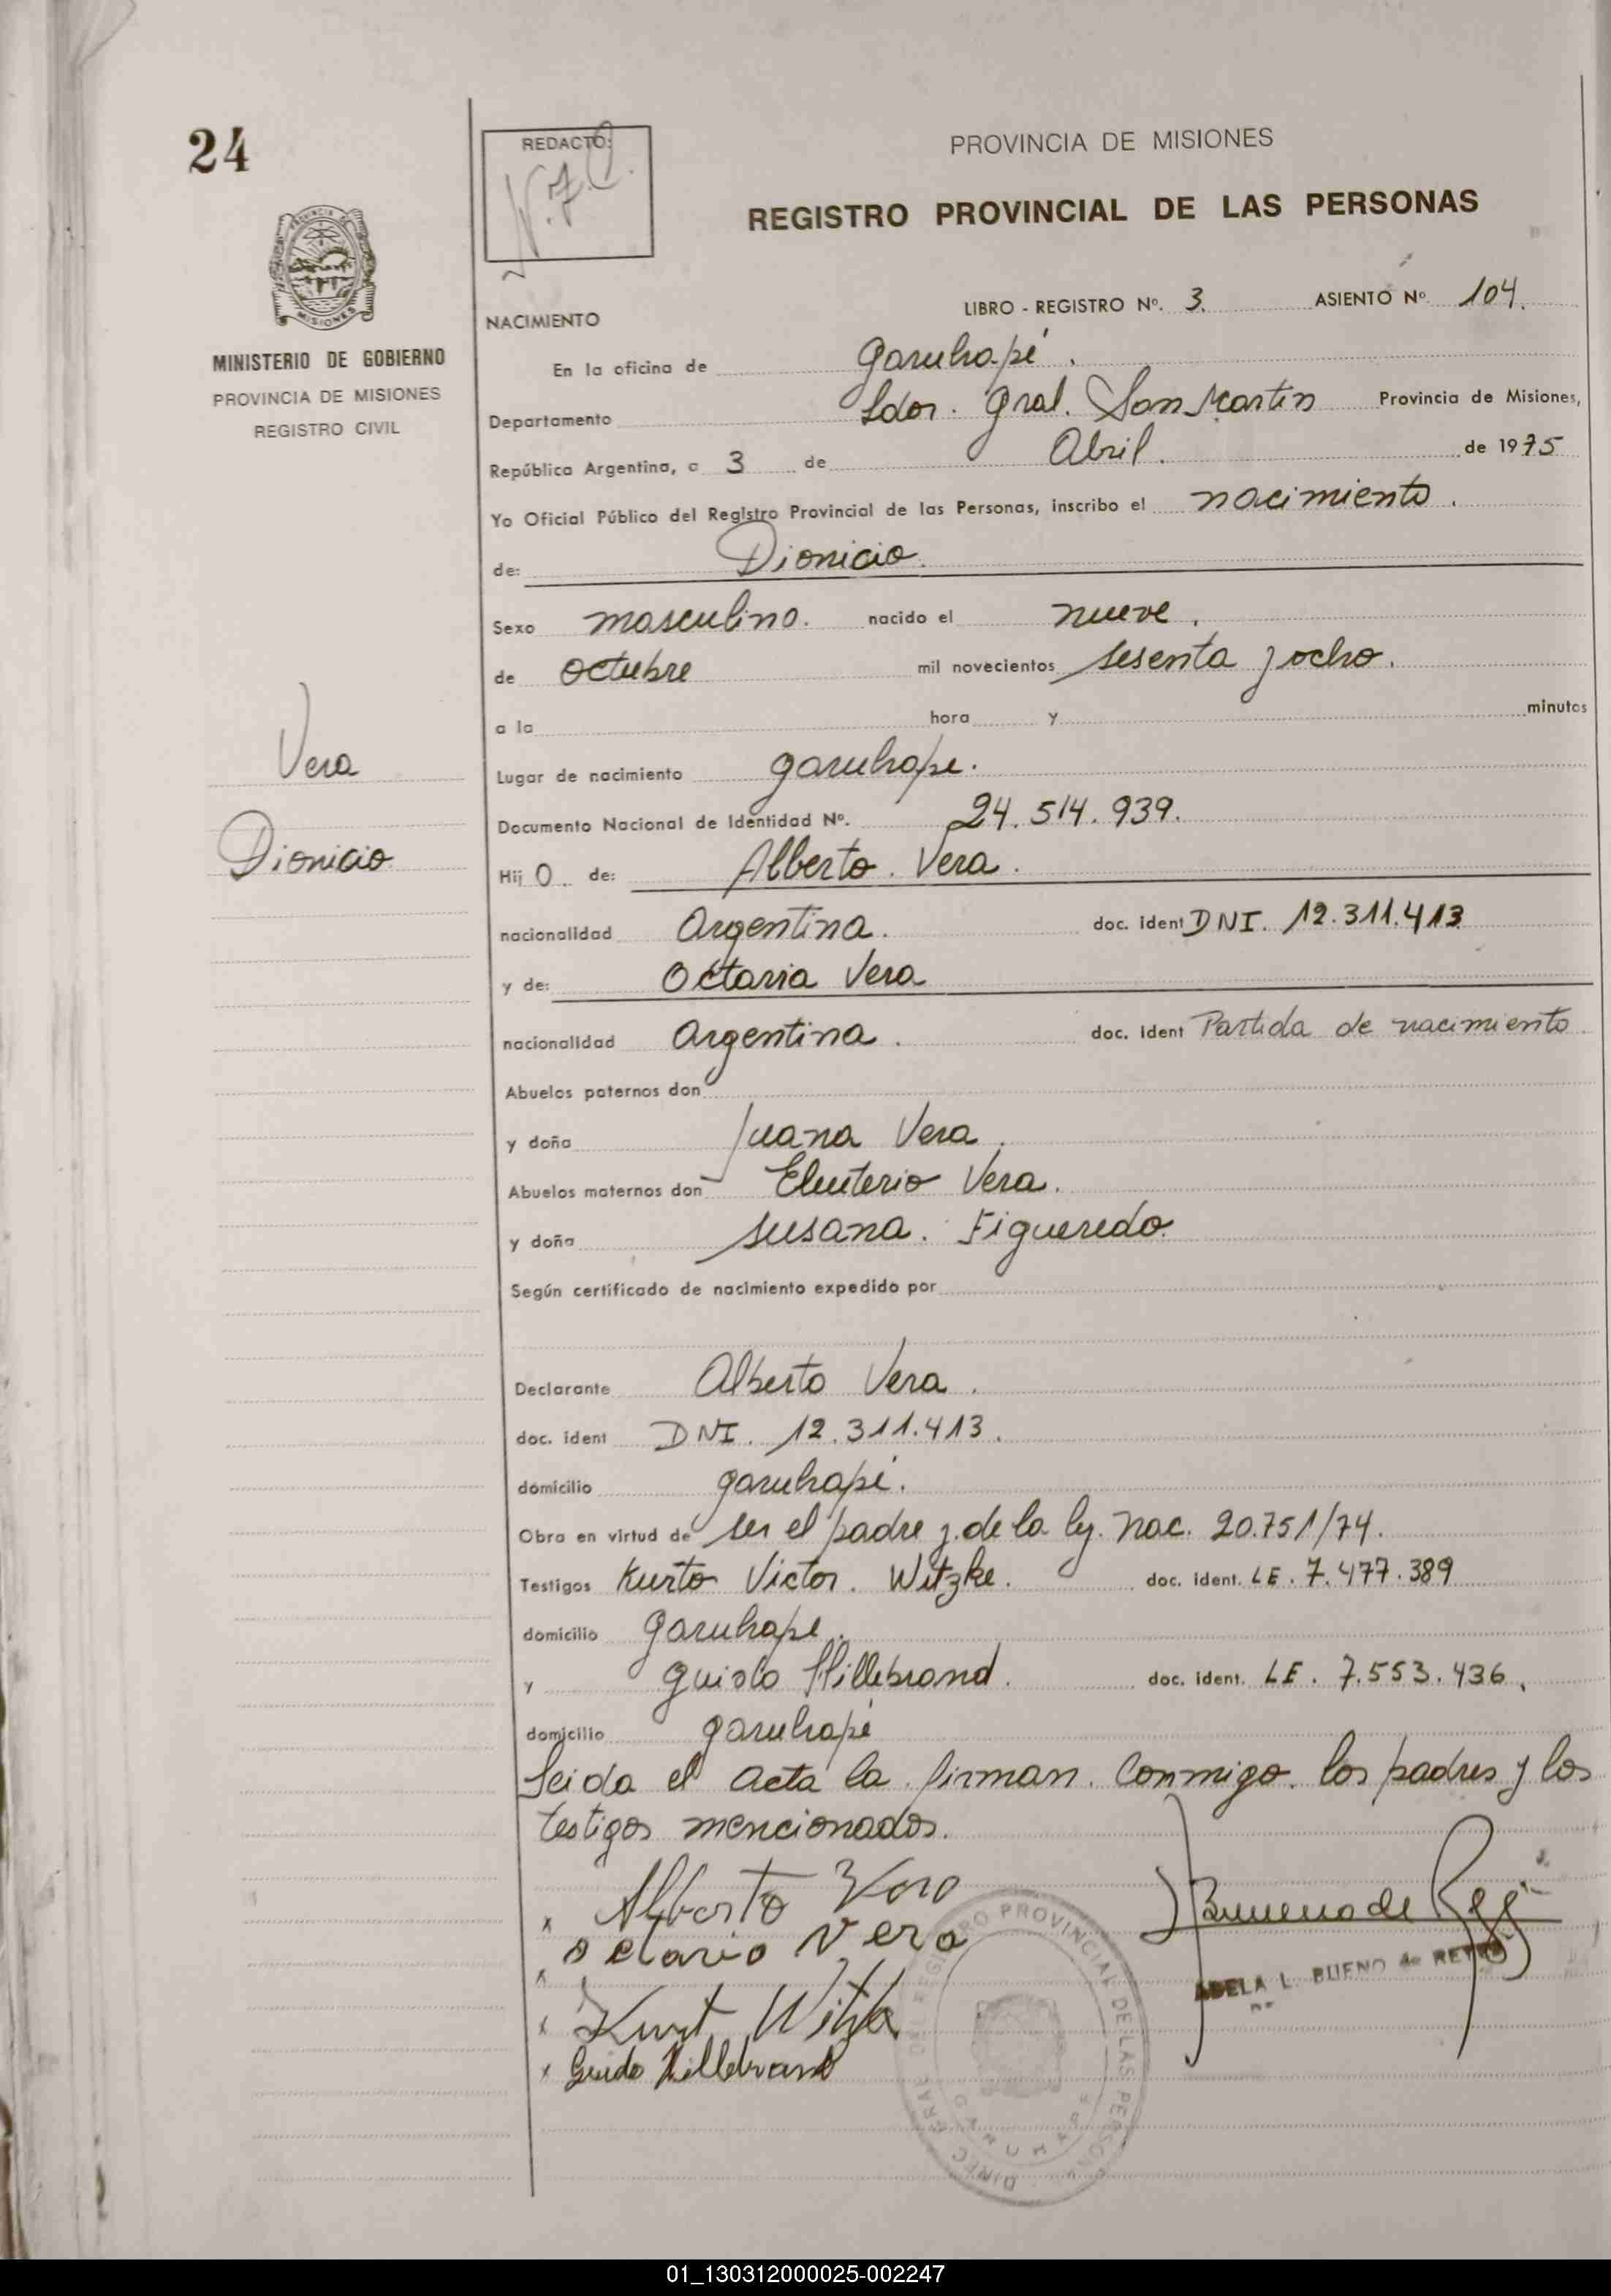 24
REDACTO:
PROVINCIA DE MISIONES
REGISTRO PROVINCIAL DE LAS PERSONAS
MISIONES
MINISTERIO DE GOBIERNO
PROVINCIA DE MISIONES
REGISTRO CIVIL
LIBRO - REGISTRO Nº. 3. ASIENTO Nº. 104.
NACIMIENTO
En la oficina de Garuhapé.
Departamento Ldor. Gral. San Martin Provincia de Misiones,
República Argentina, a 3 de Abril. de 1975
Yo Oficial Público del Registro Provincial de las Personas, inscribo el nacimiento.
de: Dionicio.
Sexo masculino. nacido el nueve.
de octubre mil novecientos sesenta y ocho.
a la hora y minutos
Vera
Lugar de nacimiento garuhape.
Documento Nacional de Identidad Nº. 24.514.939.
Dionicio
Hij o de: Alberto. Vera.
nacionalidad Argentina. doc. ident DNI. 12.311.413
y de: Octavia Vera
nacionalidad Argentina. doc. ident Partida de nacimiento.
Abuelos paternos don
y doña Juana Vera.
Abuelos maternos don Eleuterio Vera.
y doña susana. Figueredo.
Según certificado de nacimiento expedido por
Declarante Alberto Vera.
doc. ident DNI. 12.311.413.
domicilio garuhapé.
Obra en virtud de ser el padre y de la ley. nac. 20.751/74.
Testigos Kurto Victor. Witzke. doc. ident. LE. 7.477.389
domicilio garuhape.
y guido Hillebrand. doc. ident. LE. 7.553.436.
domicilio garuhapé
Leida el acta la firman. conmigo. los padres y los
testigos mencionados.
x Alberto Vera
x octavia Vera
x Kurt
x Guido Hillebrand
ADELA L. BUENO de REYES
DIREC. GRAL DEL REGISTRO PROVINCIAL DE LAS PERSONAS
GARUHAPE
01_130312000025-002247